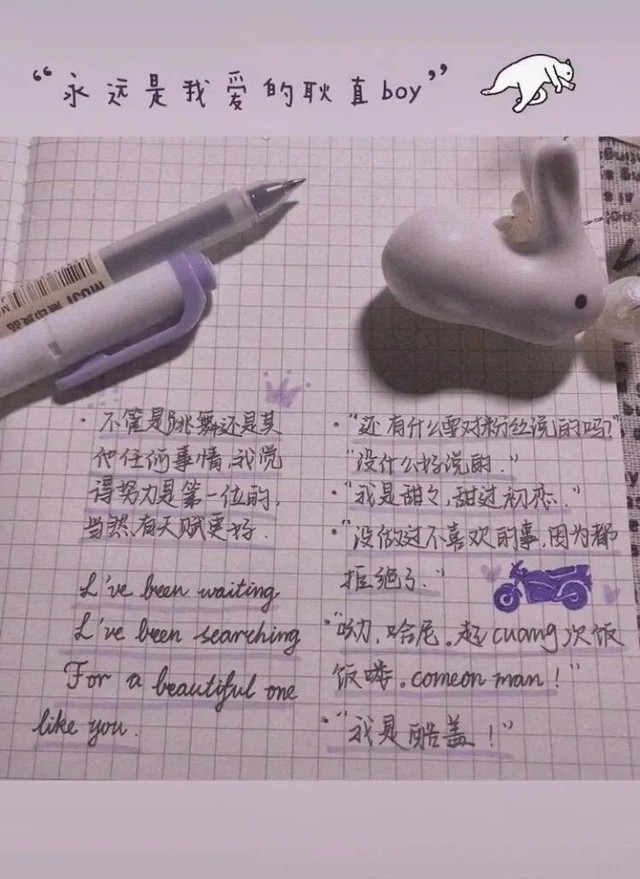 “永远是我爱的耿直boy”
MUJI 無印良品
·不管是跳舞还是其
他任何事情,我觉
得努力是第一位的,
当然,有天赋更好.
I've been waiting
I've been searching
For a beautiful one
like you.
·“还有什么要对粉丝说的吗?”
“没什么好说的.”
·“我是甜々,甜过初恋.”
·“没做过不喜欢的事,因为都
拒绝了.”
·“呦,哈尼。起cuang次饭
饭喽。comeon man!”
·“我是酷盖!”